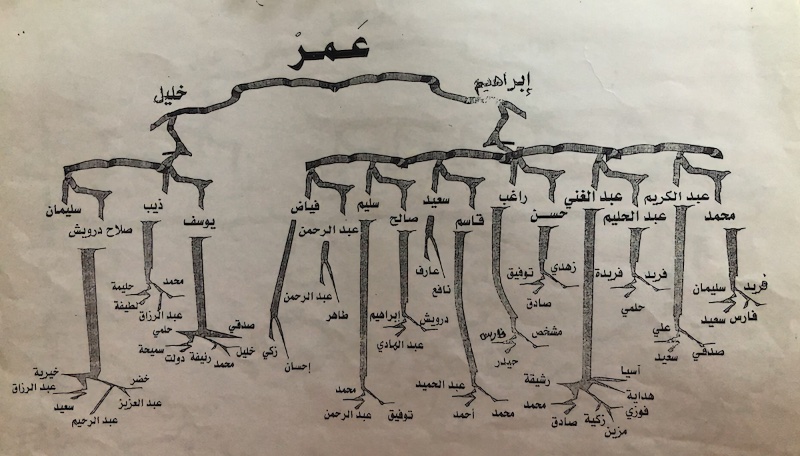 عَمرْ
إبراهيم
خليل
محمد
عبد الكريم
عبد الحليم
عبد الغني
حسن
راغب
قاسم
سعيد
صالح
سليم
عبد الرحمن
فياض
يوسف
ذيب
صلاح درويش
سليمان
فريد
سليمان
فارس
سعيد
علي
صدقي
سعيد
فريد
فريدة
حلمي
آسيا
هداية
فوزي
مزين
زكية
صادق
محمد
رشيقة
زهدي
توفيق
صادق
مشخص
فارس
جيدر
عبد الحميد
محمد
أحمد
عارف
نافع
إبراهيم
درويش
عبد الهادي
محمد
توفيق
عبد الرحمن
عبد الرحمن
طاهر
زكي
إحسان
صدقي
خليل
محمد
رئيفة
دولت
سميحة
حلمي
محمد
حليمة
لطيفة
عبد الرزاق
خيرية
عبد الرزاق
سعيد
عبد الرحيم
عبد العزيز
خضر